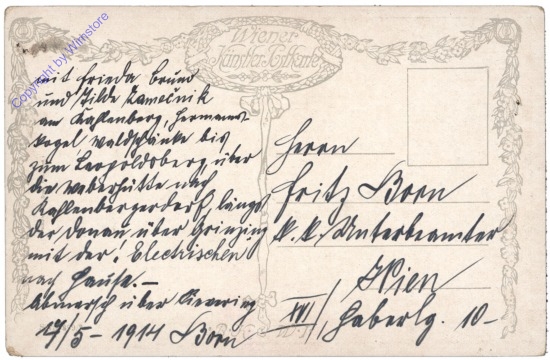 Copyright by Wilnstore
Wiener
Künstler-Postkarte
mit Frieda Brund
und Hilde Zamečnik
am Kahlenberg, Hermanns-
kogel Waldschänke bis
zum Leopoldsberg über
die Weberhütte nach
Kahlenbergerdorf, längs
der Donau über Grinzing
mit der! Electrischen
nach Hause.-
Abmarsch über Sievering
17/5-1914 Born
Herrn
Fritz Born
k.k. Unterbeamter
Wien
XVI/ Haberlg. 10-